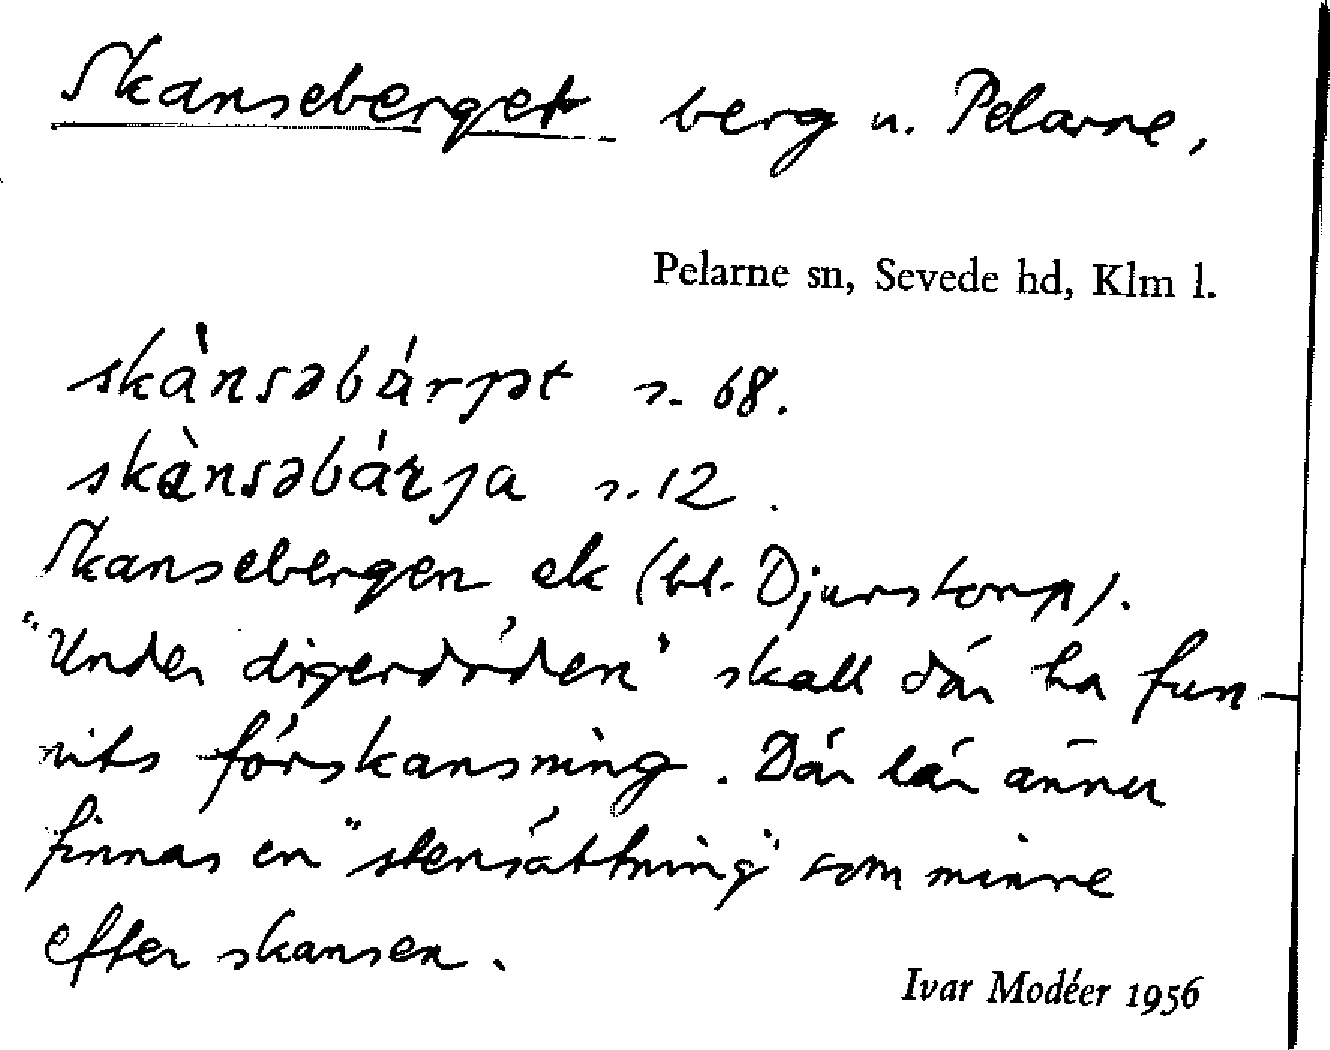 Skanseberget berg u. Pelarne,
Pelarne sn, Sevede hd, Klm l.
skànsəbárjət s. 68.
skànsəbárja s. 12.
Skansebergen ek (bl. Djurstorp).
"Under digerdöden" skall där ha fun-
nits förskansning. Där lär ännu
finnas en "stensättning" som minne
efter skansen.
Ivar Modéer 1956